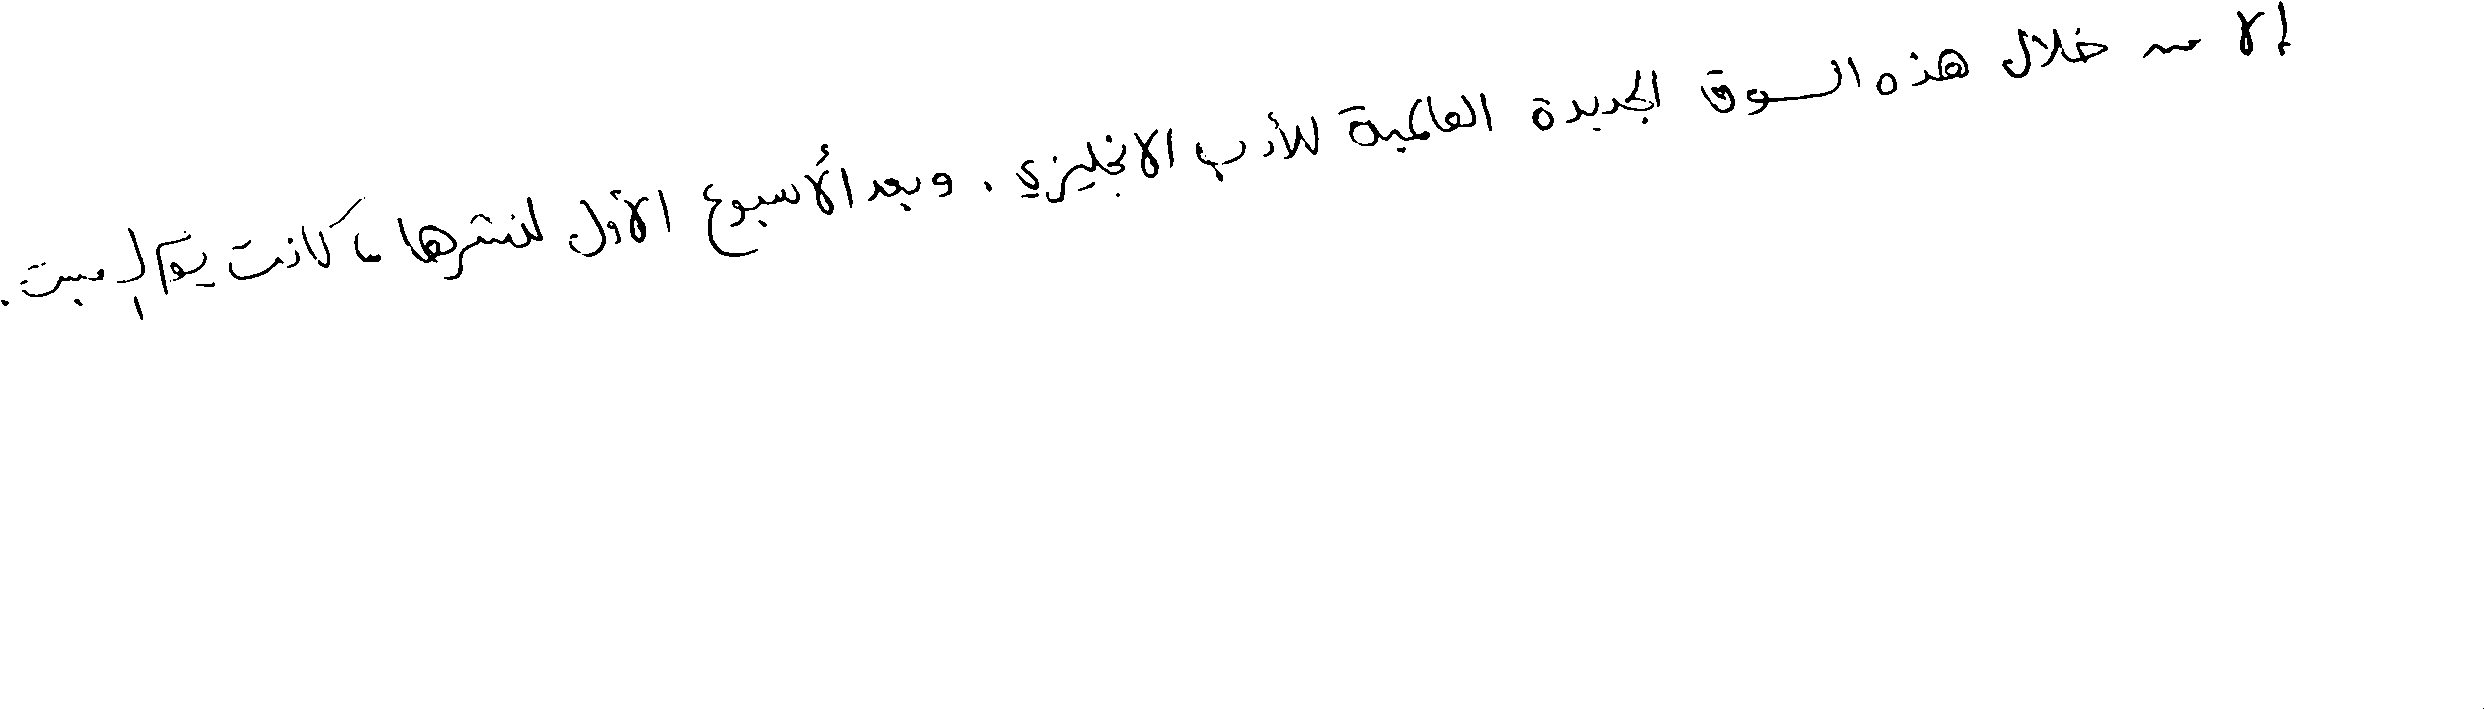 إلا من خلال هذه السوق الجديدة العالمية للأدب الانجليزي . وبعد الأسبوع الأول لنشرها ما كانت يوم السبت .